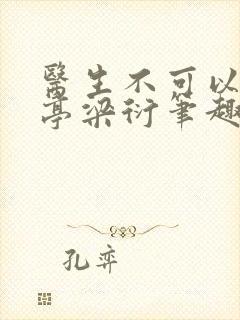 醫生不可以
亭梁衍筆趣
孔弈